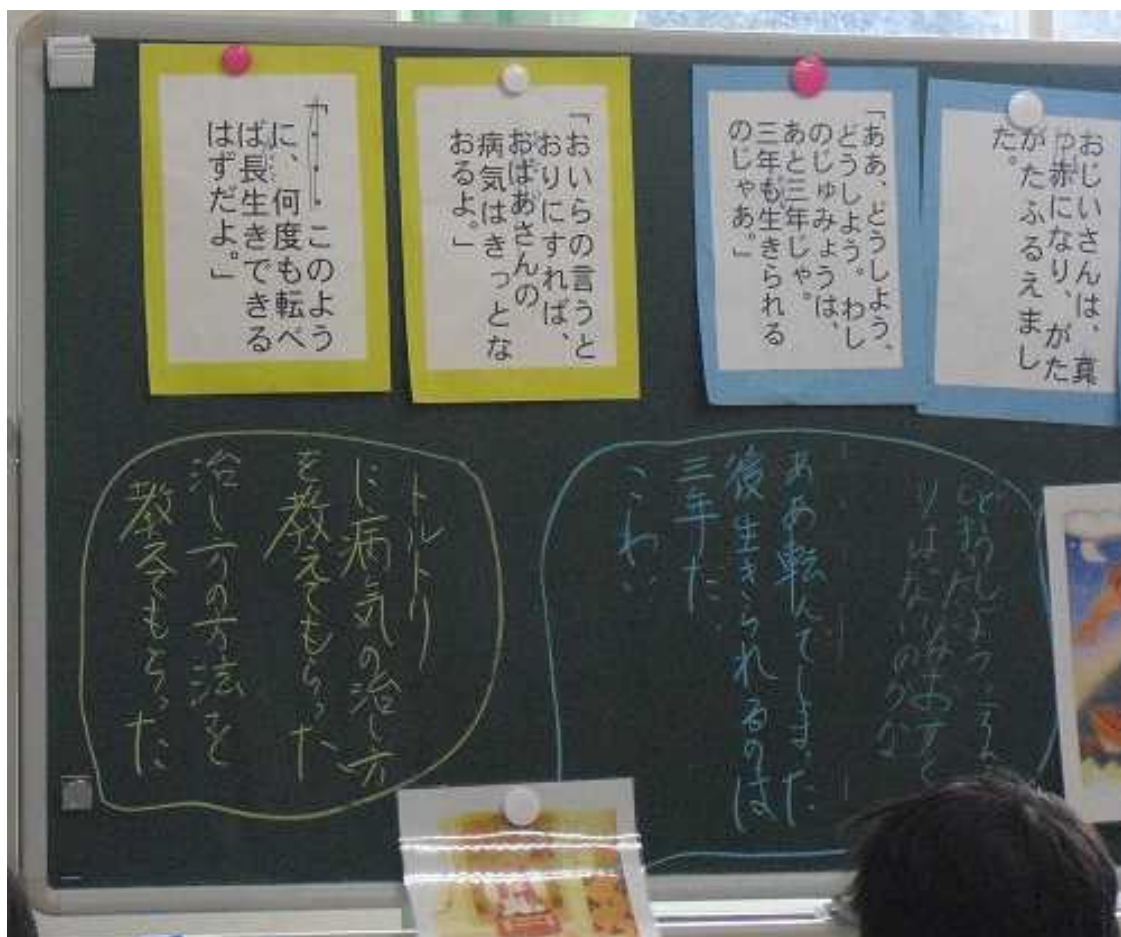 おじいさんは、真
っ赤になり、がた
がたふるえまし
た。
「ああ、どうしよう、
どうしよう。わし
のじゅみょうは、
あと三年じゃ。
三年も生きられる
のじゃあ。」
「おいらの言うと
おりにすれば、
おばあさんの
病気はきっとな
おるよ。」
このよう
に、何度も転べ
ば長生きできる
はずだよ。」
ああ転んでしまった
後生きられるのは
三年だ
こわい
トルトリ
に病気の治し方
を教えてもらった
治し方の方法を
教えてもらった